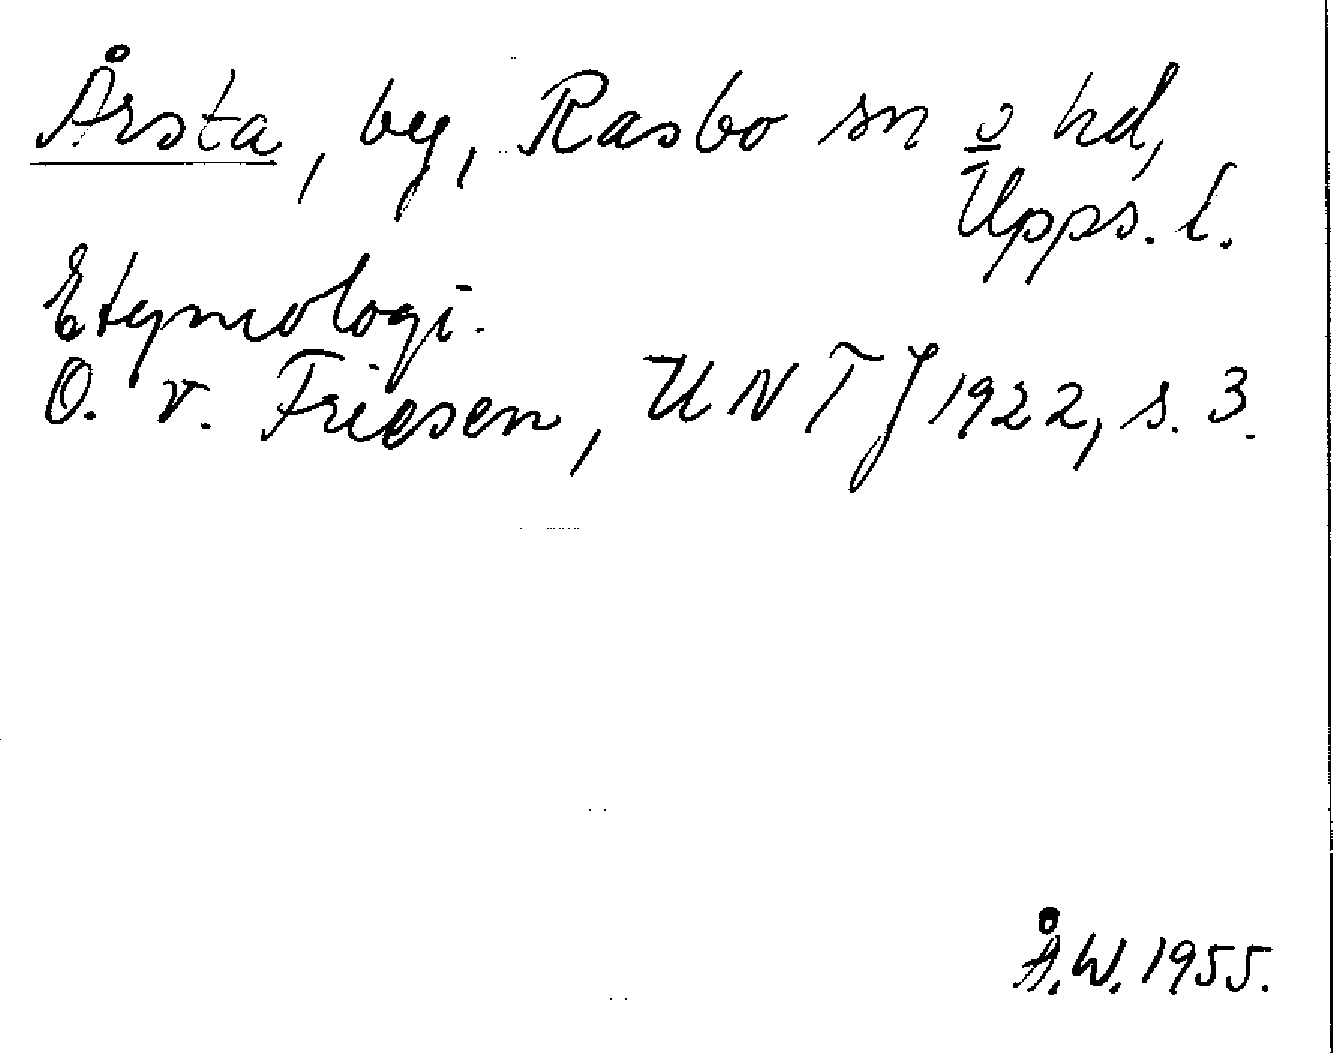 Årsta, by, Rasbo sn o hd,
Upps. l.
Etymologi.
O. v. Friesen, UNT J 1922, s. 3.
Å.W. 1955.